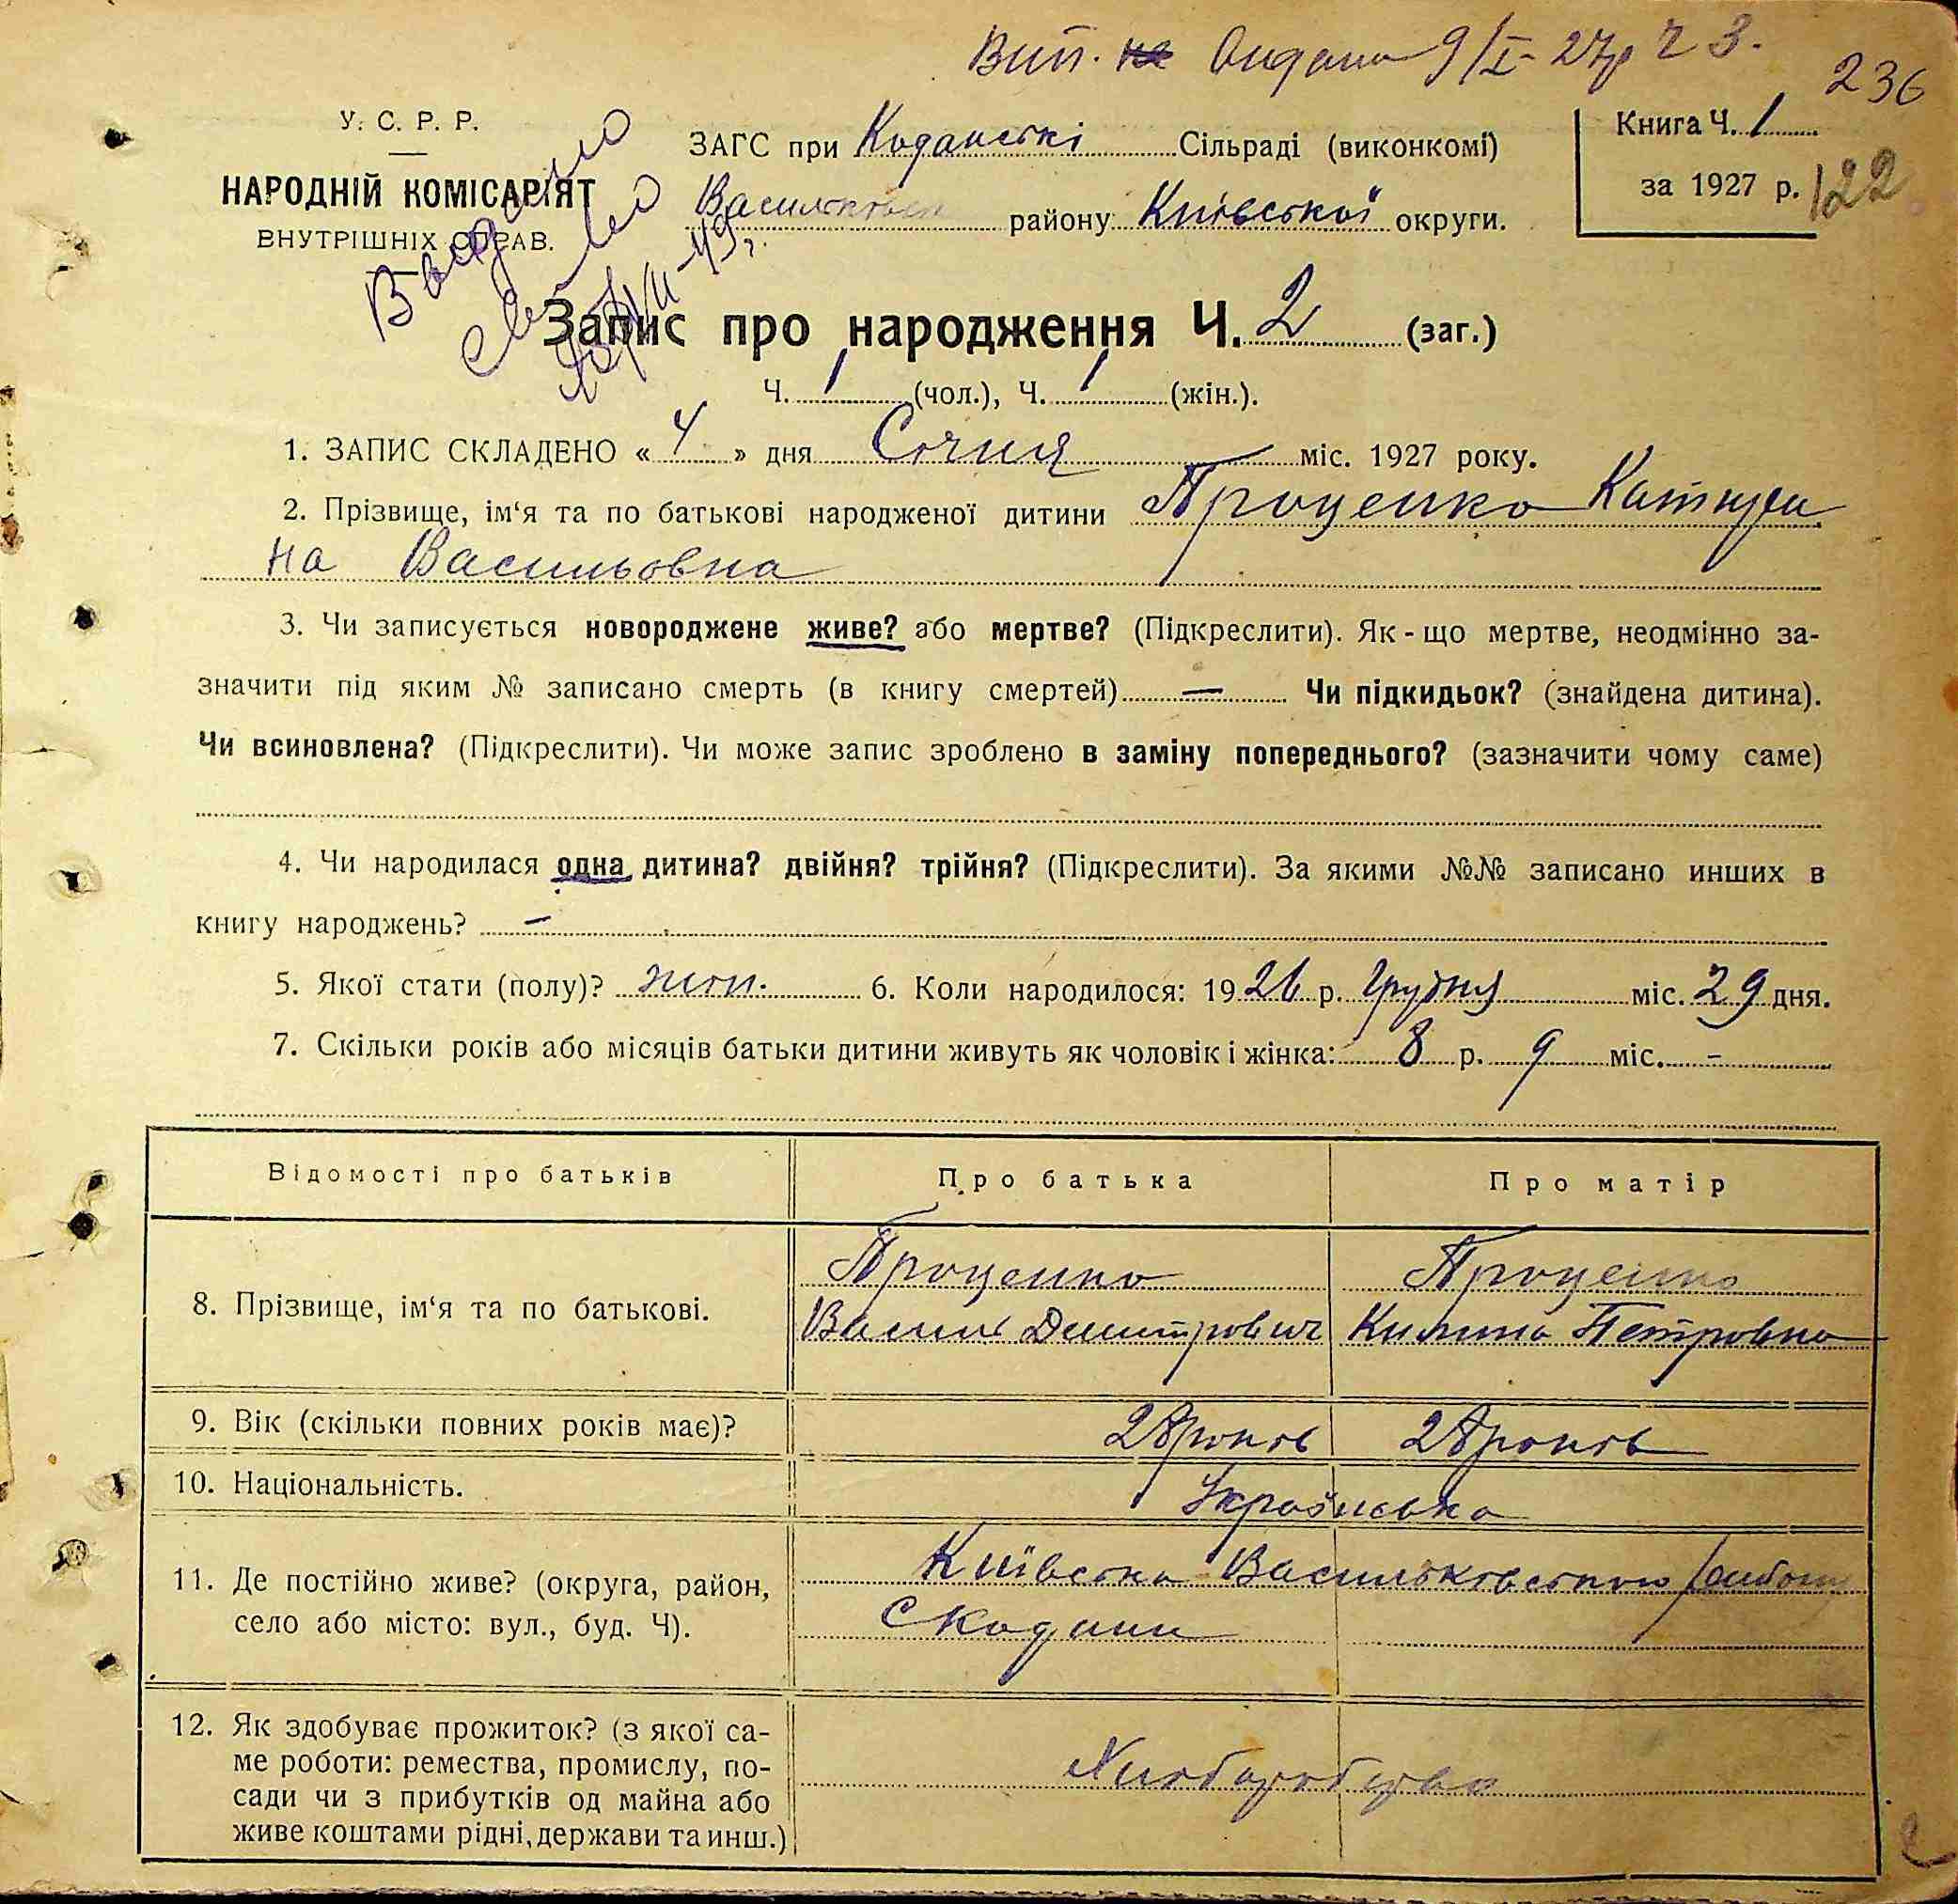 Вип. на Видана 9/I-27р Ч 3.
236
У. С. Р. Р.
НАРОДНІЙ КОМІСАРІЯТ
ВНУТРІШНІХ СПРАВ.
Видано
св-во
49г.
ЗАГС при Коданські Сільраді (виконкомі)
Васильківськ району Київської округи.
Книга Ч. 1
за 1927 р.
122
Запис про народження Ч. 2 (заг.)
Ч. 1 (чол.), Ч. 1 (жін.).
1. ЗАПИС СКЛАДЕНО « 4 » дня Січня міс. 1927 року.
2. Прізвище, ім‘я та по батькові народженої дитини Проценко Катири
на Васильовна
3. Чи записується новороджене живе? або мертве? (Підкреслити). Як-що мертве, неодмінно за-
значити під яким № записано смерть (в книгу смертей) — Чи підкидьок? (знайдена дитина).
Чи всиновлена? (Підкреслити). Чи може запис зроблено в заміну попереднього? (зазначити чому саме)
4. Чи народилася одна дитина? двійня? трійня? (Підкреслити). За якими №№ записано инших в
книгу народжень? —
5. Якої стати (полу)? жін. 6. Коли народилося: 1926 р. Грудня міс. 29 дня.
7. Скільки років або місяців батьки дитини живуть як чоловік і жінка: 8 р. 9 міс. -
Відомості про батьків Про батька Про матір
8. Прізвище, ім‘я та по батькові. Проценко Проценко
Василь Дмитрович Килина Петровна
9. Вік (скільки повних років має)? 28 років 28 років
10. Національність. Українська
11. Де постійно живе? (округа, район, Київська Васильківського
село або місто: вул., буд. Ч). С Кодаки
12. Як здобуває прожиток? (з якої са-
ме роботи: ремества, промислу, по-
сади чи з прибутків од майна або
живе коштами рідні, держави та инш.) Хліборобство